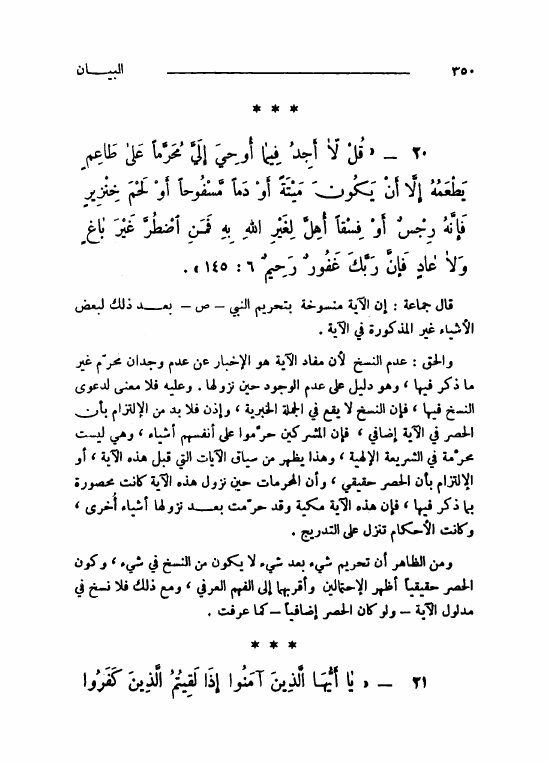 ٣٥٠ البيــان
* * *
٢٠ – « قُلْ لَّا أَجِدُ فِيمَا أُوحِيَ إِلَيَّ مُحَرَّماً عَلَىٰ طَاعِمٍ
يَطْعَمُهُ إِلَّا أَنْ يَكُونَ مَيْتَةً أَوْ دَماً مَّسْفُوحاً أَوْ لَحْمَ خِنْزِيرٍ
فَإِنَّهُ رِجْسٌ أَوْ فِسْقاً أُهِلَّ لِغَيْرِ اللهِ بِهِ فَمَنِ ٱضْطُرَّ غَيْرَ بَاغٍ
وَلَا عَادٍ فَإِنَّ رَبَّكَ غَفُورٌ رَحِيمٌ ٦ : ١٤٥ » .
قال جماعة : إن الآية منسوخة بتحريم النبي – ص – بعــد ذلك لبعض
الأشياء غير المذكورة في الآية .
والحق : عدم النسخ لأن مفاد الآية هو الإخبار عن عدم وجدان محرّم غير
ما ذكر فيها ، وهو دليل على عدم الوجود حين نزولها . وعليه فلا معنى لدعوى
النسخ فيها ، فإن النسخ لا يقع في الجملة الخبرية ، وإذن فلا بد من الإلتزام بأن
الحصر في الآية إضافي ، فإن المشركين حرّموا على أنفسهم أشياء ، وهي ليست
محرّمة في الشريعة الإلهية ، وهذا يظهر من سياق الآيات التي قبل هذه الآية ، أو
الإلتزام بأن الحصر حقيقي ، وأن المحرمات حين نزول هذه الآية كانت محصورة
بما ذكر فيها ، فإن هذه الآية مكية وقد حرّمت بعــد نزولها أشياء أُخرى ،
وكانت الأحكام تنزل على التدريج .
ومن الظاهر أن تحريم شيء بعد شيء لا يكون من النسخ في شيء ، وكون
الحصر حقيقياً أظهر الإحتمالين وأقربها إلى الفهم العرفي ، ومع ذلك فلا نسخ في
مدلول الآية – ولو كان الحصر إضافياً – كما عرفت .
* * *
٢١ – « يَا أَيُّهَا الَّذِينَ آمَنُوا إِذَا لَقِيتُمُ الَّذِينَ كَفَرُوا